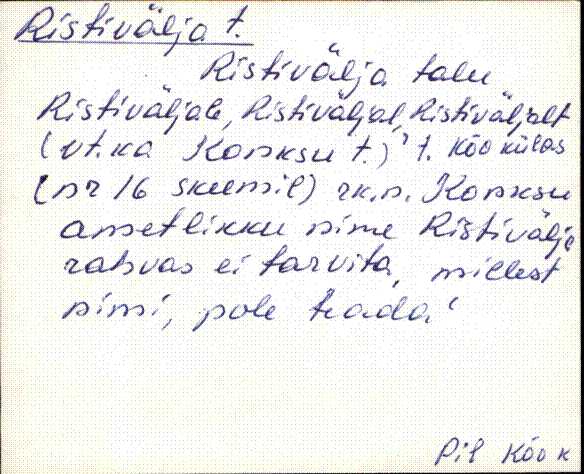 Ristivälja t.
Ristivälja talu
Ristiväljale, Ristiväljal, Ristiväljalt
(vt.ka Konksu t.) ' t. Kõo külas
(nr 16 skeemil) rk.n. Konksu
ametlikku nime Ristivälja
rahvas ei tarvita, millest
nimi, pole teada.'
Pil Kõo k